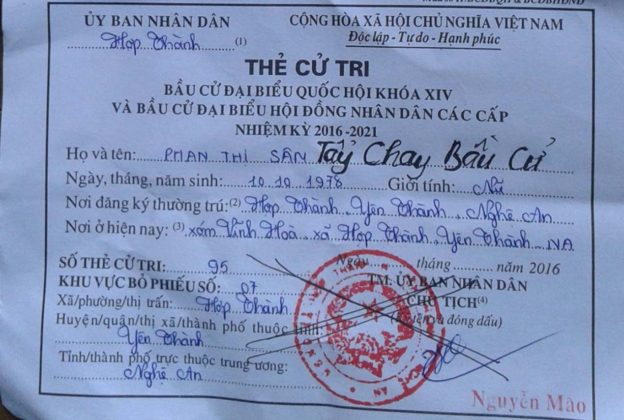 ỦY BAN NHÂN DÂN
Hợp Thành (1)
CỘNG HÒA XÃ HỘI CHỦ NGHĨA VIỆT NAM
Độc lập - Tự do - Hạnh phúc
THẺ CỬ TRI
BẦU CỬ ĐẠI BIỂU QUỐC HỘI KHÓA XIV
VÀ BẦU CỬ ĐẠI BIỂU HỘI ĐỒNG NHÂN DÂN CÁC CẤP
NHIỆM KỲ 2016 -2021
Họ và tên: PHAN THỊ SÂN Tẩy Chay Bầu Cử
Ngày, tháng, năm sinh: 10.10.1978 Giới tính: Nữ
Nơi đăng ký thường trú:(2) Hợp Thành, Yên Thành, Nghệ An
Nơi ở hiện nay: (3) xóm Vĩnh Hoà xã Hợp Thành, Yên Thành NA
Ngày tháng năm 2016
SỐ THẺ CỬ TRI: 95
TM. ỦY BAN NHÂN DÂN
KHU VỰC BỎ PHIẾU SỐ: 07
CHỦ TỊCH(4)
Xã/phường/thị trấn: Hợp Thành
(Ký tên và đóng dấu)
Huyện/quận/thị xã/thành phố thuộc tỉnh:
Yên Thành
Tỉnh/thành phố trực thuộc trung ương:
Nghệ An
Nguyễn Mão